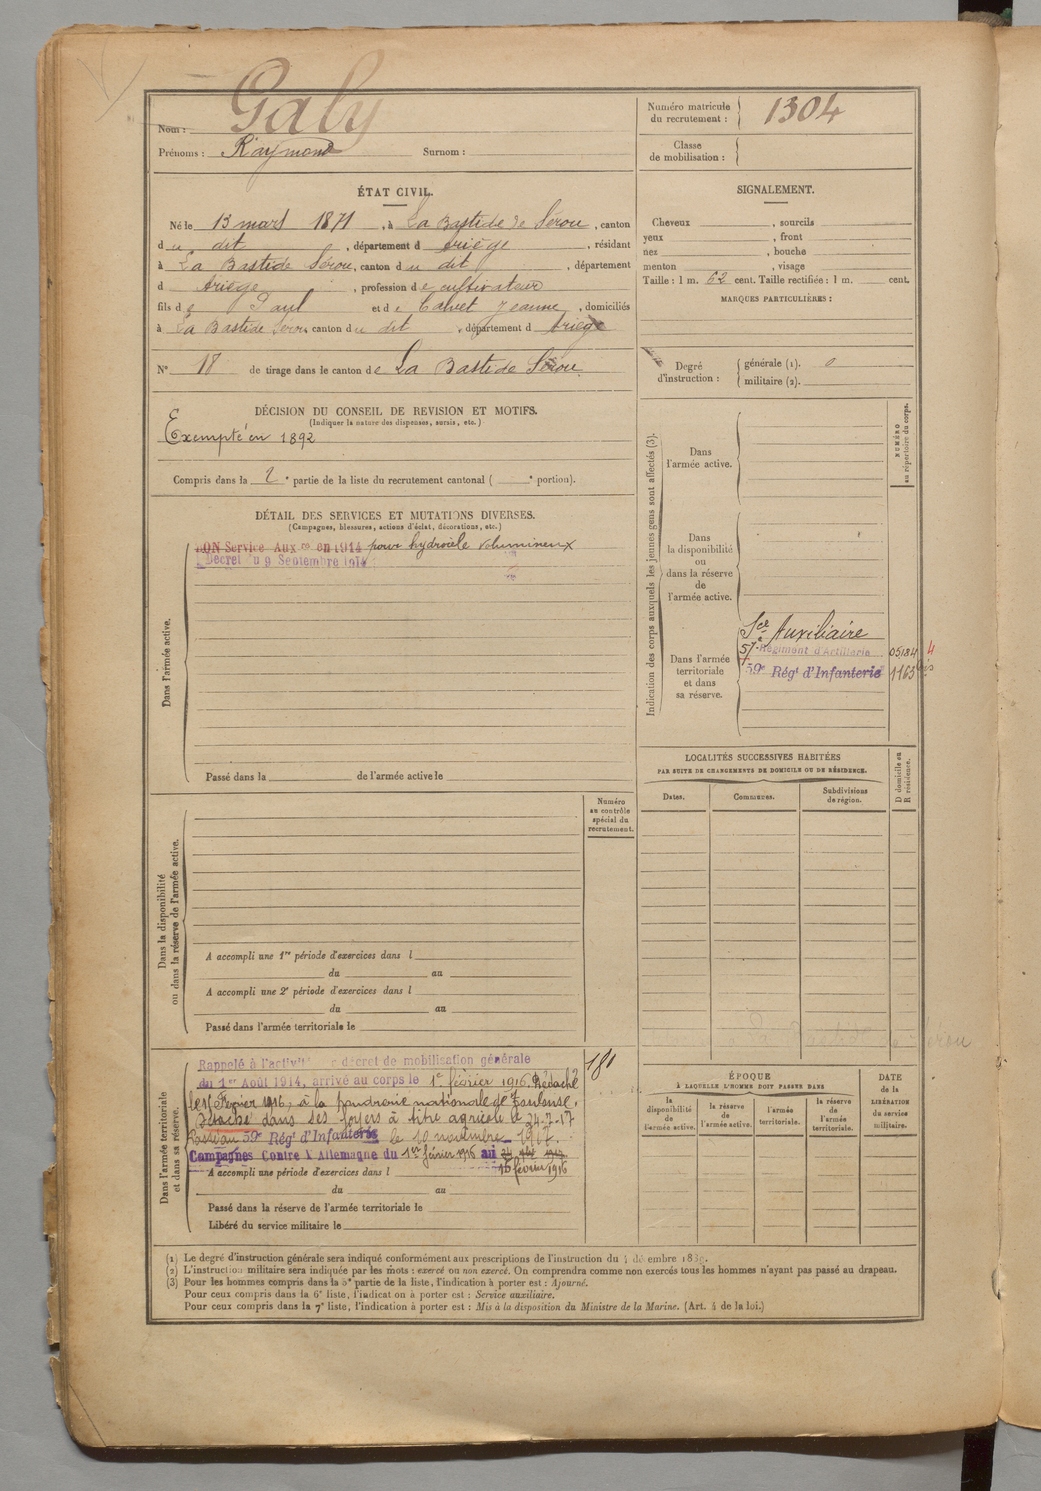 Galy
Nom :
Prénoms : Raymond Surnom :
Numéro matricule du recrutement : 1304
Classe de mobilisation :
ÉTAT CIVIL.
Né le 13 mars 1871, à La Bastide de Sérou, canton
du dit, département d Ariège, résidant
à La Bastide Sérou, canton du dit, département
d Ariège, profession de cultivateur
fils de Paul et de Calvet Jeanne, domiciliés
à La Bastide Sérou canton du dit, département d Ariège
N° 18 de tirage dans le canton de La Bastide Sérou.
SIGNALEMENT.
Cheveux , sourcils
yeux , front
nez , bouche
menton , visage
Taille : 1 m. 62 cent. Taille rectifiée : 1 m. cent.
MARQUES PARTICULIÈRES :
Degré d'instruction :
générale (1). 0
militaire (2).
DÉCISION DU CONSEIL DE REVISION ET MOTIFS.
(Indiquer la nature des dispenses, sursis, etc.)
Exempté en 1892
Compris dans la 2e partie de la liste du recrutement cantonal ( e portion).
DÉTAIL DES SERVICES ET MUTATIONS DIVERSES.
(Campagnes, blessures, actions d'éclat, décorations, etc.)
Dans l'armée active.
BON Service Auxre en 1914 pour hydrocèle volumineux
Décret du 9 Septembre 1914
Passé dans la de l'armée active le
Indication des corps auxquels les jeunes gens sont affectés (3).
NUMÉRO au répertoire du corps.
Dans l'armée active.
Dans la disponibilité ou dans la réserve de l'armée active.
Dans l'armée territoriale et dans sa réserve.
Sce Auxiliaire
57e Régiment d'Artillerie 05184 4
59e Régt d'Infanterie 1163 bis
Dans la disponibilité ou dans la réserve de l'armée active.
Numéro au contrôle spécial du recrutement.
A accompli une 1re période d'exercices dans l
du au
A accompli une 2e période d'exercices dans l
du au
Passé dans l'armée territoriale le
LOCALITÉS SUCCESSIVES HABITÉES
PAR SUITE DE CHANGEMENTS DE DOMICILE OU DE RÉSIDENCE.
D domicile ou R résidence.
Dates. Communes. Subdivisions de région.
Dans l'armée territoriale et dans sa réserve.
181
Rappelé à l'activité décret de mobilisation générale
du 1er Août 1914, arrivé au corps le 1er février 1916. Détaché
le 16 Février 1916, à la poudrerie nationale de Toulouse.
Détaché dans ses foyers à titre agricole le 24-7-17
Passé au 59e Régt d'Infanterie le 10 novembre 1917.
Campagnes Contre l'Allemagne du 1er février 1916 au
16 février 1916
A accompli une période d'exercices dans l
du au
Passé dans la réserve de l'armée territoriale le
Libéré du service militaire le
ÉPOQUE
À LAQUELLE L'HOMME DOIT PASSER DANS
la disponibilité de l'armée active.
la réserve de l'armée active.
l'armée territoriale.
la réserve de l'armée territoriale.
DATE de la LIBÉRATION du service militaire.
(1) Le degré d'instruction générale sera indiqué conformément aux prescriptions de l'instruction du 4 décembre 1889.
(2) L'instruction militaire sera indiquée par les mots : exercé ou non exercé. On comprendra comme non exercés tous les hommes n'ayant pas passé au drapeau.
(3) Pour les hommes compris dans la 5e partie de la liste, l'indication à porter est : Ajourné.
Pour ceux compris dans la 6e liste, l'indication à porter est : Service auxiliaire.
Pour ceux compris dans la 7e liste, l'indication à porter est : Mis à la disposition du Ministre de la Marine. (Art. 4 de la loi.)